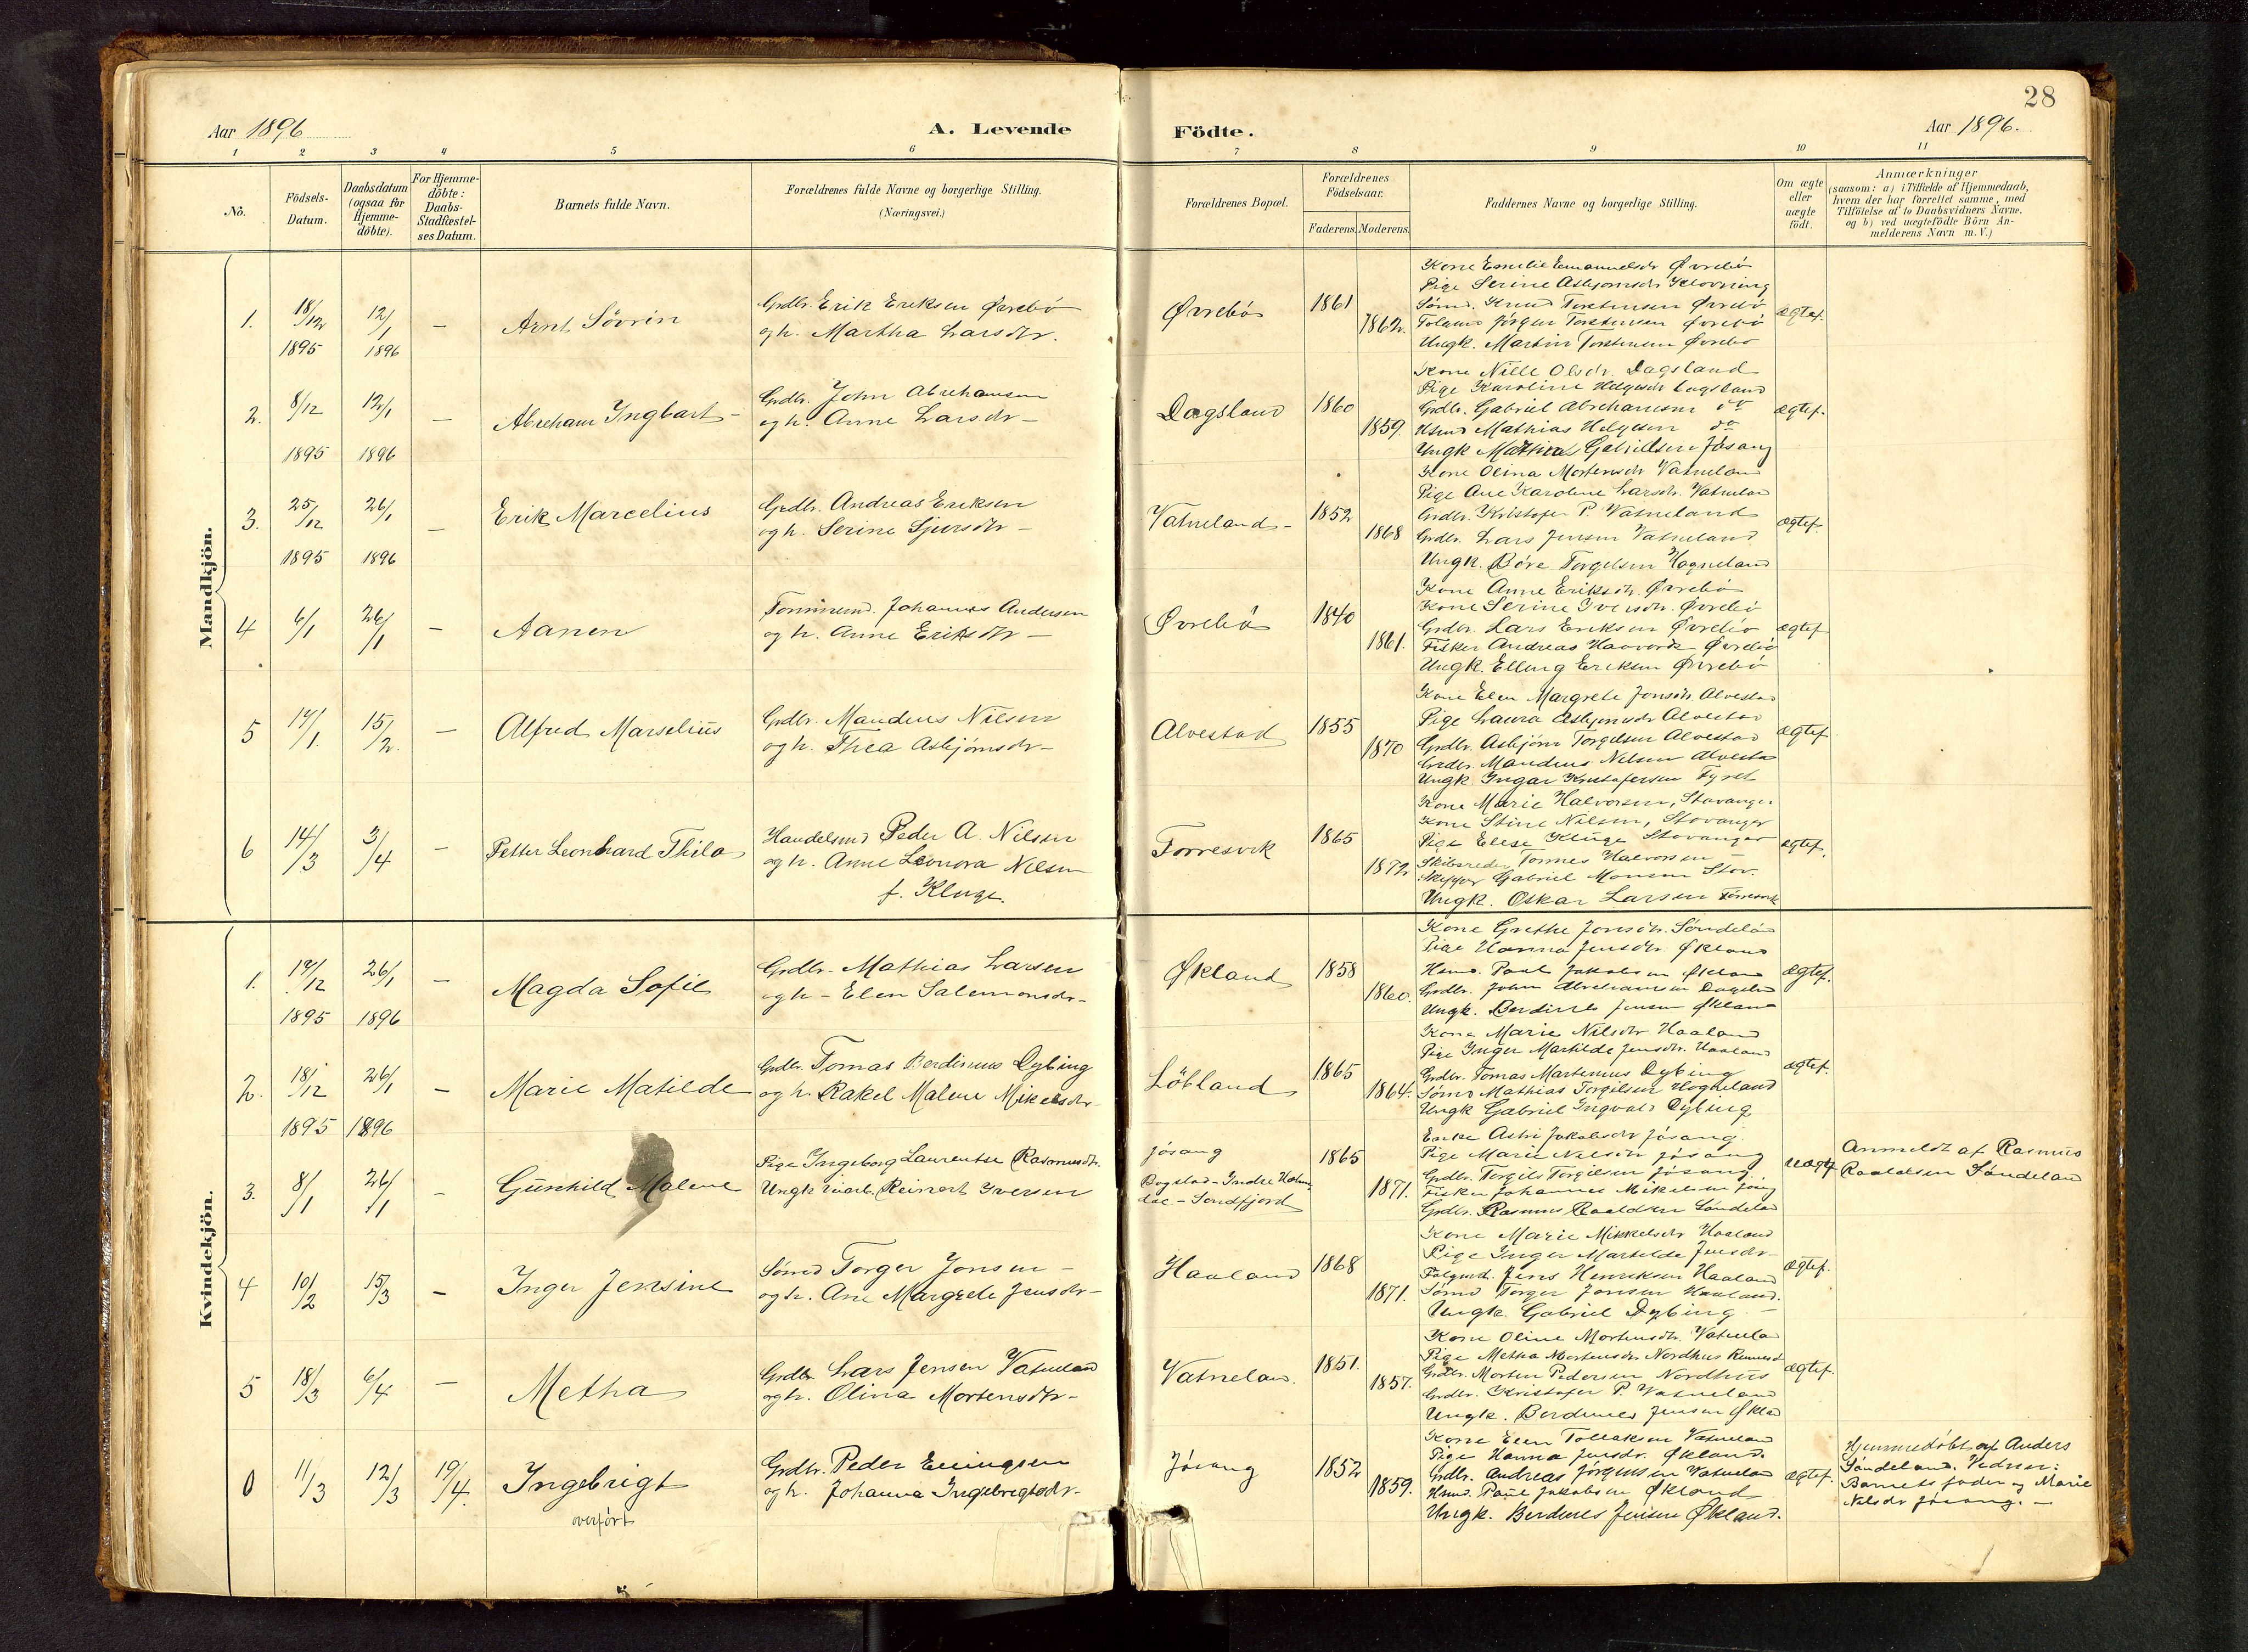 28
Aar 1896
A. Levende
Födte.
Aar 1896.
1 2 3 4 5 6 7 8 9 10 11
No.
Födsels-
Datum.
Daabsdatum
(ogsaa for
Hjemme-
döbte).
For Hjemme-
döbte:
Daabs-
Stadfæstel-
ses Datum.
Barnets fulde Navn.
Forældrenes fulde Navne og borgerlige Stilling.
(Næringsvei.)
Forældrenes Bopæl.
Forældrenes
Födselsaar.
Faderens. Moderens.
Faddernes Navne og borgerlige Stilling.
Om ægte
eller
uægte
födt.
Anmærkninger
(saasom: a) i Tilfælde af Hjemmedaab,
hvem der har forrettet samme, med
Tilföielse af to Daabsvidners Navne.
og b) ved uægtefödte Börn An-
melderens Navn m. V.)
Mandkjön.
1. 18/12 1895 12/1 1896 – Arnt Sövrin
Grdbr. Erik Eriksen Øvrebö
og h. Martha Larsdtr.
Øvrebö 1861 1862.
Kone Emilie Emanuelsdr Øvrebö
Pige Serine Asbjornsdr Klovning
Sömd. Knud Torstensen Øvrebö
Jörgen Torstensen Øvrebö
Ungk. Martin Torstensen Øvrebö
ægtef.
2. 8/12 1895 12/1 1896 – Abreham Ingbart –
Grdbr. John Abrehamsen
og h. Anne Larsdr –
Dagsland 1860 1859.
Kone Nille Olsdr. Dagsland
Pige Karoline Helgesdr Dagsland
Grdbr. Gabriel Abrehamsen do
Hsmd Mathias Helgesen do
Ungk Gabrielsen Jösang
ægtef.
3. 25/12 1895 26/1 1896 – Erik Marcelius
Grdbr. Andreas Eriksen
og h. Serine Sjursdtr –
Vatneland – 1852 1868
Kone Olina Mortensdr Vatneland
Pige Ane Karoline Larsdr. Vatneland
Grdbr. Kristofer P. Vatneland
Grdbr. Lars Jensen Vatneland
Ungk. Böre Torgelsen Hogneland
ægtef.
4 6/1 26/1 – Aanen
Tommermd. Johannes Andersen
og h. Anne Eriksdtr –
Øvrebö 1840 1861.
Kone Anne Eriksdr. Øvrebö
Kone Serine Iversdr. Øvrebö
Grdbr. Lars Eriksen Øvrebö
Fisker Andreas Haavardr Øvrebö
Ungk Elling Eriksen Øvrebö
ægtef
5 17/1. 15/2. – Alfred Marselius
Grdbr. Mandius Nilsen
og h. Thea Asbjörnsdr –
Alvestad 1855 1870
Kone Elen Margrete Jonsdr Alvestad
Pige Laura Asbjornsdr Alvestad
Grdbr. Asbjörn Torgilsen Alvestad
Grdbr. Mandius Nilsen Alvestad
Ungk Ingar Kristofersen
ægtef
6 14/3 3/4 – Petter Leonhard Thilo
Handelsmd Peder A. Nilsen
og h. Anne Leonora Nilsen
f. Kluge.
Torresvik 1865 1872
Kone Marie Halvorsen, Stavanger
Kone Stine Nilsen, Stavanger
Pige Elise Kluge Stavanger
Skibsreder Tonnes Halvorsen –
Skipper Gabriel Monsen Stav.
Ungk. Oskar Larsen Torresvik
ægtef.
Kvindekjön.
1. 17/12 1895 26/1 1896 – Magda Sofie
Grdbr. Mathias Larsen
og h – Elen Salemonsdr –
Økland 1858 1860.
Kone Grethe Jonsdtr. Søndeland
Pige Hanna Jensdtr. Økland
Hsmd. Paul Jakobsen Økland
Grdbr. John Abrehamsen Dagsland
Ungk. Berdines Jensen Økland
ægtef.
2. 18/12 1895 26/1 1896 – Marie Matilde
Grdbr. Tomas Berdinius Dybing
og h. Rakel Malene Mikelsdr.
Löbland 1865 1864.
Kone Marie Nilsdr Haaland
Pige Inger Martilde Jensdr. Haaland
Grdbr. Tomas Martenius Dybing
Sømd Mathias Torgilsen Hogneland
Ungk Gabriel Ingvald Dybing
ægtef.
3. 8/1 26/1 – Gunhild Malene
Pige Ingeborg Laurentse Rasmusdtr.
Ungk Reinert Iversen
Jösang
Bogstad – Indre Holm
dal – Sondfjord
1865 1871.
Enke Astri Jakobsdr Jösang.
Pige Marie Nilsdr Jösang
Grdbr. Torgils Torgilsen Jösang
Fisker Johannes Mikelsen Jösang
Grdbr. Rasmus Roaldsen Söndeland
uægtef
Anmeldt af Rasmus
Roaldsen Söndeland
4 10/2 15/3 – Inger Jensine
Sömd Torger Jonsen –
og h. Ane Margrete Jensdr –
Haaland 1868 1871.
Kone Marie Mikkelsdr Haaland
Pige Inger Martilde Jensdr –
Folgemd. Jens Henriksen Haaland
Sömd Torger Jonsen Haaland.
Ungk. Gabriel Dybing. –
ægtef.
5 18/3 6/4 – Metha
Grdbr Lars Jensen Vatneland
og h. Olina Mortensdtr –
Vatneland. 1851. 1857.
Kone Oline Mortensdr. Vatneland
Pige Metha Mortensdr Nordhus Rennesö
Grdbr. Morten Pedersen Nordhus
Grdbr. Kristofer P. Vatneland
Ungk. Berdines Jensen Økland
ægtef.
0 11/3 12/3 19/4. Ingebrigt
overfört
Grdbr. Peder Ellingsen
og h. Johanna Ingebrigtsdr –
Jösang 1852 1859.
Kone Elen Tollaksen Vatneland
Pige Hanna Jensdr. Økland.
Grdbr. Andreas Jörgensen Vatneland
Hsmd. Paul Jakobsen Økland
Ungk. Berdines Jensen Økland.
ægtef.
Hjemmedöbt af Anders
Söndeland. Vidner:
Barnets fader og Marie
Nilsdr Jösang. –